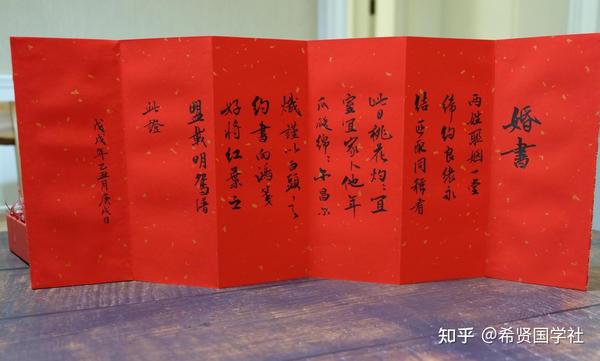 婚書
两姓聯姻一堂
締约良缘永
结匹配同稱看
此日桃花灼〻宜
室宜家卜他年
瓜瓞綿〻尔昌尔
熾謹以白頭之
约書向鴻箋
好将紅葉之
盟載明鴛譜
此證
戊戌年乙丑月庚戌日
知乎 @希贤国学社